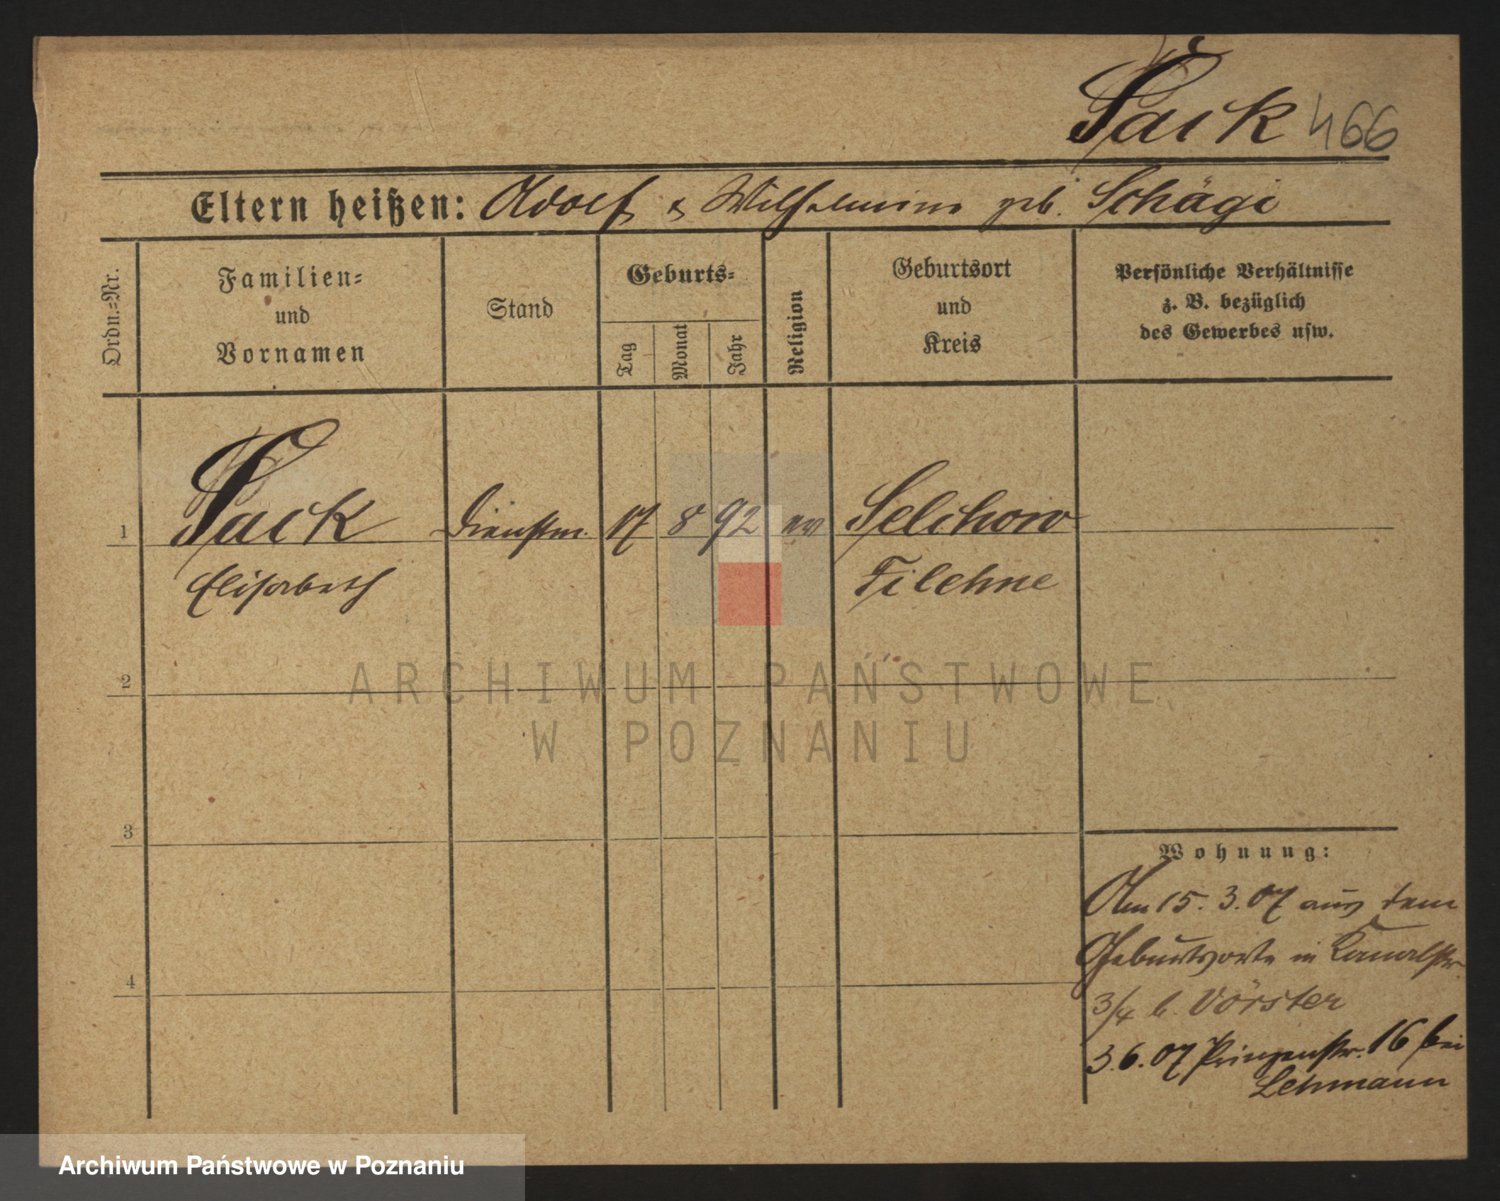 Sack 466
Eltern heißen: Adolf & Wilhelmine geb. Schägi
Ordn.-Nr.
Familien-
und
Vornamen
Stand
Geburts-
Tag
Monat
Jahr
Religion
Geburtsort
und
Kreis
Persönliche Verhältnisse
z. B. bezüglich
des Gewerbes usw.
1 Sack Dienstm. 17 8 92 ev Selchow
Elisabeth Filehne
2
3
4
Wohnung:
Am 15. 3. 07 aus dem
Geburtsorte in Kanalstr.
3/4 b. Vörster
3. 6. 07 Prinzenstr. 16 bei
Lehmann
ARCHIWUM PAŃSTWOWE
W POZNANIU
Archiwum Państwowe w Poznaniu